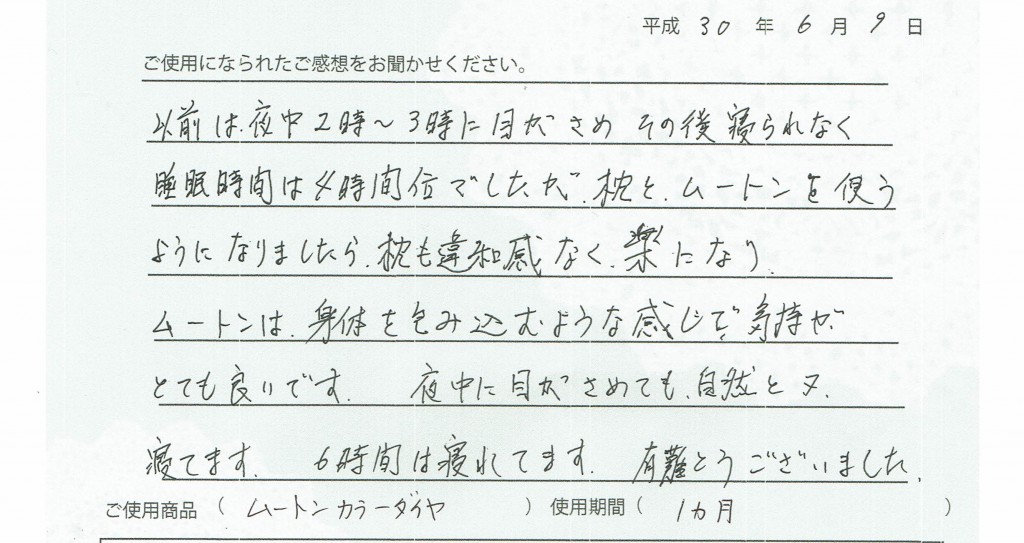 平成 30 年 6 月 9 日
ご使用になられたご感想をお聞かせください。
以前は、夜中2時～3時に目がさめ その後寝られなく
睡眠時間は4時間位でしたが、枕と、ムートンを使う
ようになりましたら、枕も違和感なく、楽になり、
ムートンは、身体を包み込むような感じで、気持が
とても良いです。 夜中に目がさめても、自然とヌ、
寝てます。 6時間は寝れてます。 有難とうございました。
ご使用商品 （ ムートンカラーダイヤ ） 使用期間（ 1カ月 ）